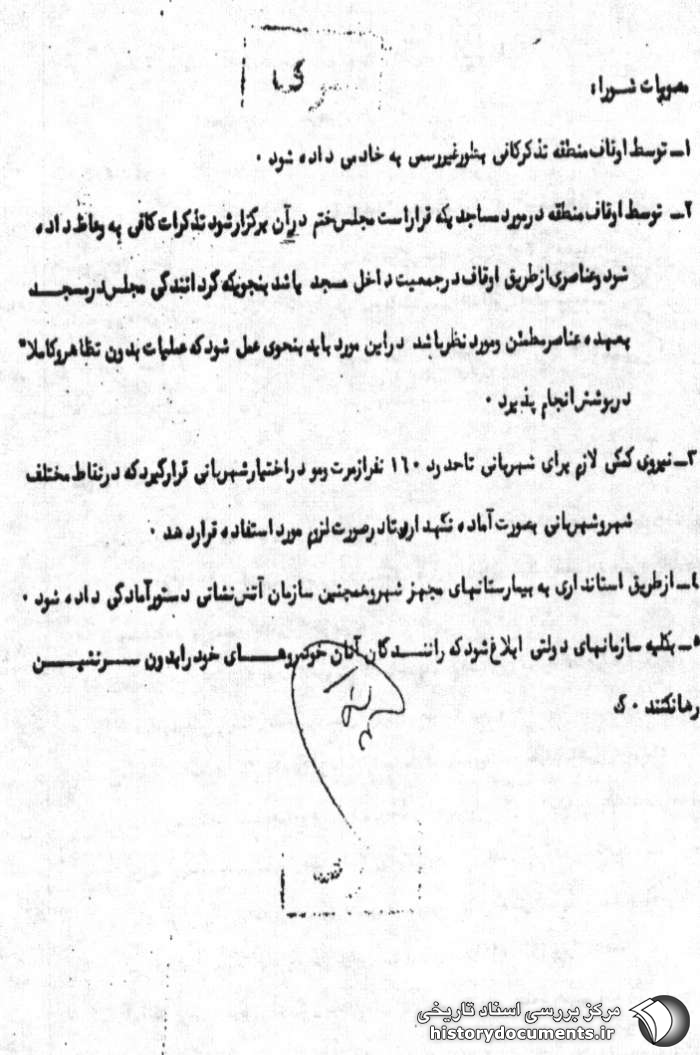 مصوبات شورا:
۱ــ توسط اوقاف منطقه تذکر کافی بطور غیررسمی به خادمی داده شود .
۲ــ توسط اوقاف منطقه در مورد مساجدیکه قرار است مجلس ختم در آن برگزار شود تذکرات کافی به وعاظ داده
شود و عناصری از طریق اوقاف در جمعیت داخل مسجد باشد بنحویکه گردانندگی مجلس در مسجد
بعهده عناصر مطمئن و مورد نظر باشد در این مورد باید بنحوی عمل شود که عملیات بدون تظاهر و کاملا"
در پوشش انجام پذیرد .
۳ــ نیروی کمکی لازم برای شهربانی تا حدود ۱۶۰ نفر از مرت ومو در اختیار شهربانی قرار گیرد که در نقاط مختلف
شهر و شهربانی بصورت آماده نگهداری تا در صورت لزوم مورد استفاده قرار دهد .
۴ــ از طریق استانداری به بیمارستانهای مجهز شهر و همچنین سازمان آتش نشانی دستور آمادگی داده شود .
۵ــ بکلیه سازمانهای دولتی ابلاغ شود که رانندگان آنان خودروهای خود را بدون سرنشین
رها نکنند . ک
مرکز بررسی اسناد تاریخی
historydocuments.ir